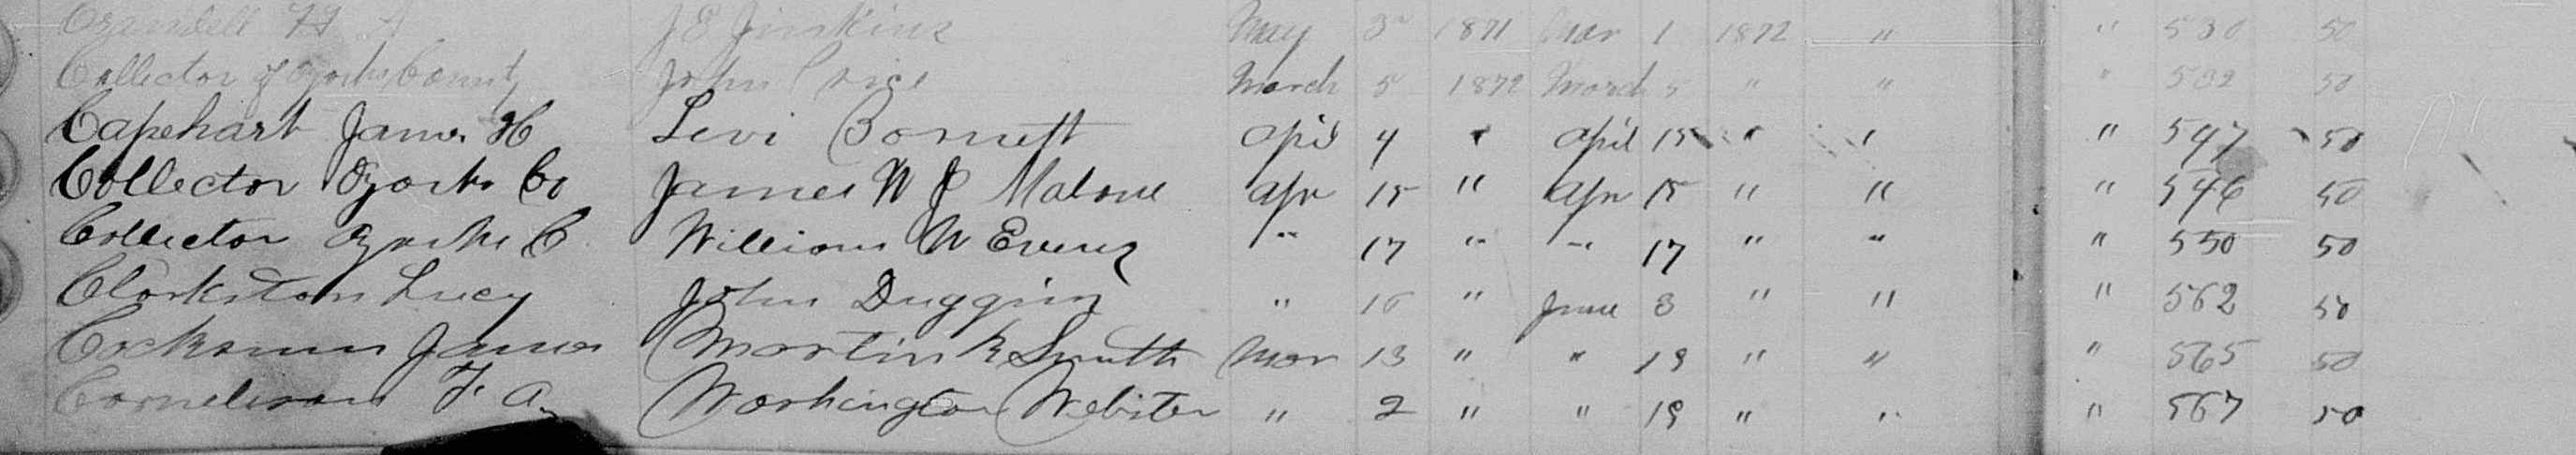 Crandell J E Jinkins May 3 1871 Mar 1 1872 " " 530 50
Collector of Ozark County John Price March 5 1872 March 5 " " " 532 50
Capehart James H Levi Bonnett April 4 " April 15 " " " 547 50
Collector Ozark Co James W P Malone Apr 15 " Apr 15 " " " 546 50
Collector Ozark C William W Evens " 17 " " 17 " " " 550 50
Clarkston Lucy John Duggin " 16 " June 8 " " " 562 50
James Martin R Smith Mar 13 " " 19 " " " 565 50
Cornelison F. A. Washington Webster " 2 " " 19 " " " 567 50